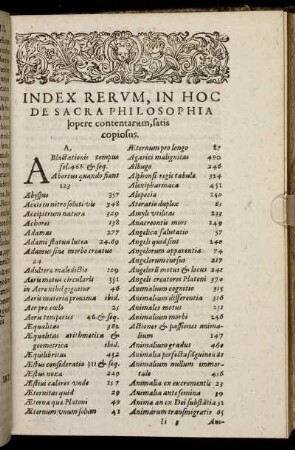 INDEX RERVM, IN HOC
DE SACRA PHILOSOPHIA
opere contentarum, satis
copiosus.
A.
Ablactationis tempus
fol. 465. & seq.
Abortus quando fiant
123
Abyssus 357
Accis in nitro soluti vis 348
Accipitrum natura 309
Achores
Adamas 277
Adami statua lutea 24.69
Adamus sine morbo creatus
24
Adultera maledictio 109
Aeris motus circularis 351
in Aere nihil gignitur 46
Aeris materia proxima ibid.
Aer pro cœlo 25
Aeris temperies 46. & seq.
Æqualitas 382
Æqualitas arithmetica &
geometrica ibid.
Æquilibrium 452
Æstus consideratio 311 & seq.
Æstus noxa 229
Æstui calores unde 157
Æternitas quid 29
Æterna qua Platoni 49
Æternum unum solum 41
Æternum pro longo 87
Agarici malignitas 490
Albugo 246
Alphonsi regis tabula 324
Alexipharmaca 451
Alopecia 240
Aleratio duplex 81
Amyli utilitas 233
Anacreontis mors 149
Angelica salutatio 57
Angeli quid sint 241
Angelorum apparentia 74
Angelorum cursus 217
Angelorũ motus & locus 242
Angeli creatores Platoni 370
Animalium cognatio 315
Animalium differentia 316
Animales motus 251
Animalium morbi 246
Actiones & passiones anima-
lium 147
Animalium gradus 468
Animalia perfecta sãguinea 81
Animalium nullum immor-
tale 436
Animalia ex excrementis 23
Animalia ante semina 39
Anima an ex Dei substãtia 51
Animarum transmigratio 65
Ani-